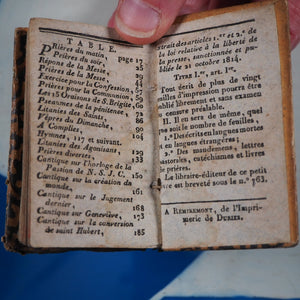 TABLE.
Prières du matin, page 17
Prières du soir, 23
Répons de la Messe, 29
Prières de la Messe, 34
Exercice pour la Confession, 57
Prières pour la Communion, 59
Les 15 Oraisons de S. Brigite,
Pseaumes de la pénitence, 72
Litanies des Saints, 86
Vêpres du Dimanche, 90
A Complies, 104
Hymnes, 117 et suivant.
Litanies des Agonisans, 129
Prières diverses, 133
Cantique sur l'horloge de la
Passion de N. S. J. C. 150
Cantique sur la création du
monde, 161
Cantique sur le Jugement
dernier, 168
Cantique sur Geneviève, 173
Cantique sur la conversion
de saint Hubert, 185
Extrait des articles 1.er et 2.e de
la loi relative à la liberté de
la presse, sanctionnée et pu-
bliée le 21 octobre 1814.
TITRE I.er, art. I.er
Tout écrit de plus de vingt
feuilles d'impression pourra être
publié librement et sans examen
ou censure préalable.
II. Il en sera de même, quel
que soit le nombre de feuilles,
1.° Des écrits en langues mortes
ou langues étrangères.
2.° Des mandemens, lettres
pastorales, catéchismes et livres
de prières.
La libraire-éditeur de ce petit
office est breveté sous le n.° 763.
A REMIREMONT, de l'Impri-
merie de DUBIEZ.